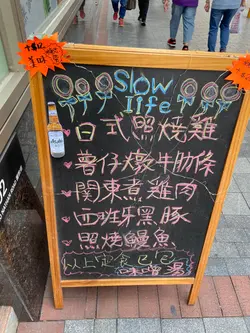 Slow
life
日式照燒雞
薯仔燉牛肋條
関東煮雞肉
西班牙黑豚
照燒鰻魚
以上定食已包
味噌湯